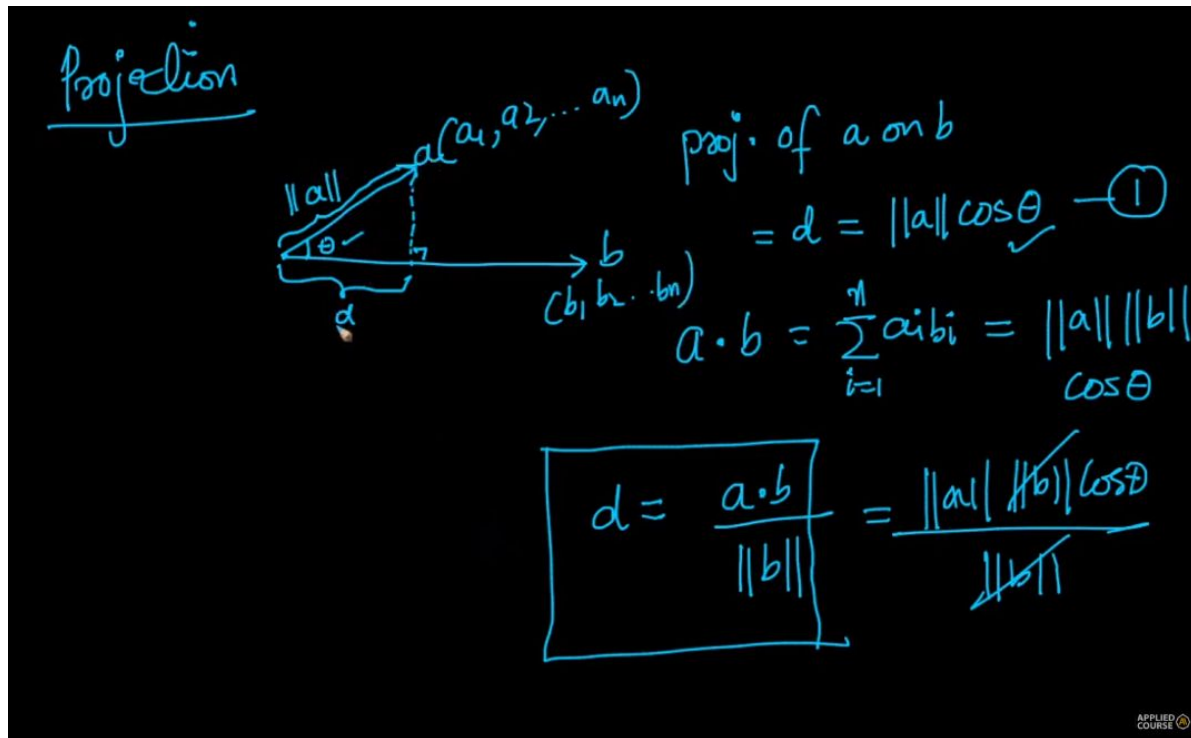 Projection
a(a1, a2, ... an)
||a||
θ ✓
d
b
(b1, b2 .. bn)
proj. of a on b
= d = ||a|| cosθ — 1
a · b = n∑i=1 aibi = ||a|| ||b||
cosθ
d = a·b / ||b|| = ||a|| ||b|| cosθ / ||b||
APPLIED
COURSE